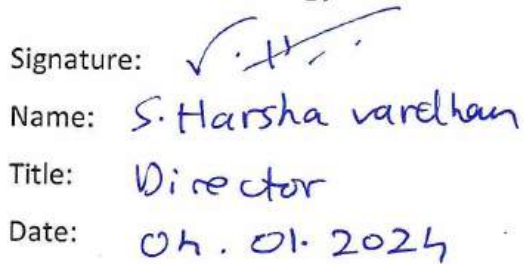 Signature:
Name: S. Harsha vardhan
Title: Director
Date: 04. 01. 2024